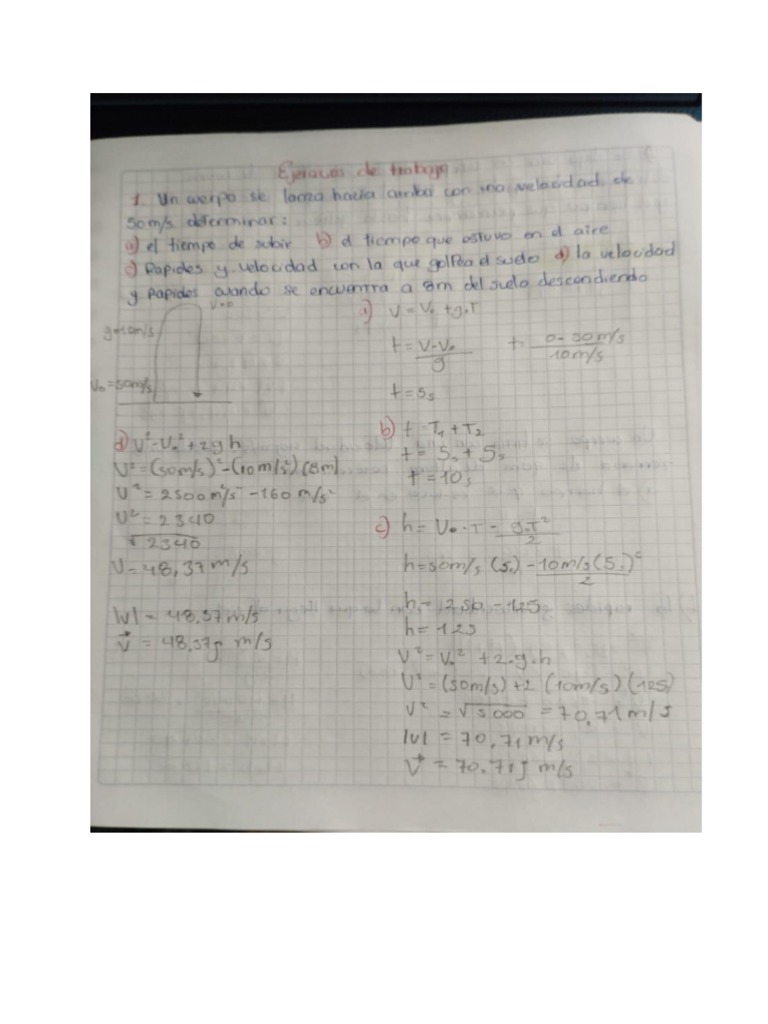 Ejercicios de trabajo
1. Un cuerpo se lanza hacia arriba con una velocidad de
50m/s determinar:
a) el tiempo de subir b) el tiempo que estuvo en el aire
c) Rapides y velocidad con la que golpea el suelo d) la velocidad
y rapides cuando se encuentra a 8m del suelo descondiendo
V=0
g=10m/s
Vo=50m/s
a) V = Vo + g.T
t = V-Vo / g t = 0-50m/s / 10m/s
t = 5s
b) t = T1 + T2
t = 5s + 5s
t = 10s
c) h = Vo . T - g.T² / 2
h = 50m/s (5s) - 10m/s (5s)² / 2
h = 250 - 125
h = 125
V² = Vo² + 2.g.h
V² = (50m/s) + 2 (10m/s) (125)
V² = √5000 = 70,71m/s
|v| = 70,71m/s
V⃗ = 70.71j m/s
d) V² - Vo² + 2gh
V² = (50m/s)² - (10m/s²) (8m)
V² = 2500m²/s - 160 m/s²
V² = 2340
√2340
V = 48,37m/s
|v| = 48,37m/s
V⃗ = 48,37j m/s